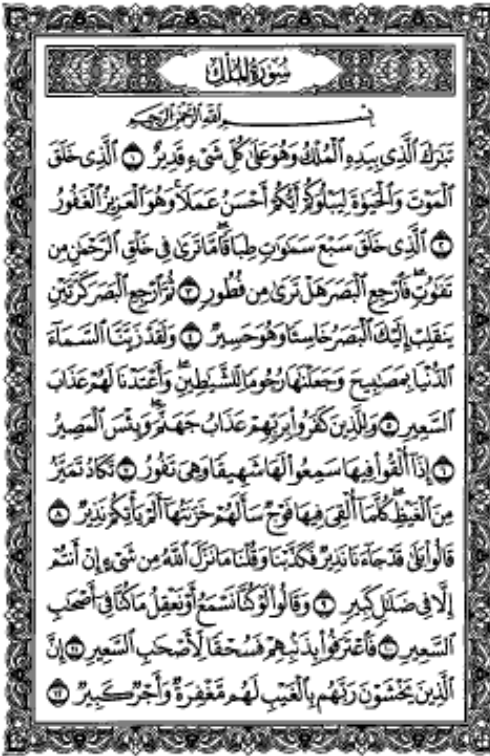 سُورَةُ الْمُلْكِ
بِسْمِ اللَّهِ الرَّحْمَٰنِ الرَّحِيمِ
تَبَٰرَكَ ٱلَّذِى بِيَدِهِ ٱلْمُلْكُ وَهُوَ عَلَىٰ كُلِّ شَىْءٍ قَدِيرٌ ١ ٱلَّذِى خَلَقَ
ٱلْمَوْتَ وَٱلْحَيَوٰةَ لِيَبْلُوَكُمْ أَيُّكُمْ أَحْسَنُ عَمَلًا وَهُوَ ٱلْعَزِيزُ ٱلْغَفُورُ
٢ ٱلَّذِى خَلَقَ سَبْعَ سَمَٰوَٰتٍ طِبَاقًا مَّا تَرَىٰ فِى خَلْقِ ٱلرَّحْمَٰنِ مِن
تَفَٰوُتٍ فَٱرْجِعِ ٱلْبَصَرَ هَلْ تَرَىٰ مِن فُطُورٍ ٣ ثُمَّ ٱرْجِعِ ٱلْبَصَرَ كَرَّتَيْنِ
يَنقَلِبْ إِلَيْكَ ٱلْبَصَرُ خَاسِئًا وَهُوَ حَسِيرٌ ٤ وَلَقَدْ زَيَّنَّا ٱلسَّمَآءَ
ٱلدُّنْيَا بِمَصَٰبِيحَ وَجَعَلْنَٰهَا رُجُومًا لِّلشَّيَٰطِينِ وَأَعْتَدْنَا لَهُمْ عَذَابَ
ٱلسَّعِيرِ ٥ وَلِلَّذِينَ كَفَرُوا۟ بِرَبِّهِمْ عَذَابُ جَهَنَّمَ وَبِئْسَ ٱلْمَصِيرُ
٦ إِذَآ أُلْقُوا۟ فِيهَا سَمِعُوا۟ لَهَا شَهِيقًا وَهِىَ تَفُورُ ٧ تَكَادُ تَمَيَّزُ
مِنَ ٱلْغَيْظِ كُلَّمَآ أُلْقِىَ فِيهَا فَوْجٌ سَأَلَهُمْ خَزَنَتُهَآ أَلَمْ يَأْتِكُمْ نَذِيرٌ ٨
قَالُوا۟ بَلَىٰ قَدْ جَآءَنَا نَذِيرٌ فَكَذَّبْنَا وَقُلْنَا مَا نَزَّلَ ٱللَّهُ مِن شَىْءٍ إِنْ أَنتُمْ
إِلَّا فِى ضَلَٰلٍ كَبِيرٍ ٩ وَقَالُوا۟ لَوْ كُنَّا نَسْمَعُ أَوْ نَعْقِلُ مَا كُنَّا فِىٓ أَصْحَٰبِ
ٱلسَّعِيرِ ١٠ فَٱعْتَرَفُوا۟ بِذَنۢبِهِمْ فَسُحْقًا لِّأَصْحَٰبِ ٱلسَّعِيرِ ١١ إِنَّ
ٱلَّذِينَ يَخْشَوْنَ رَبَّهُم بِٱلْغَيْبِ لَهُم مَّغْفِرَةٌ وَأَجْرٌ كَبِيرٌ ١٢